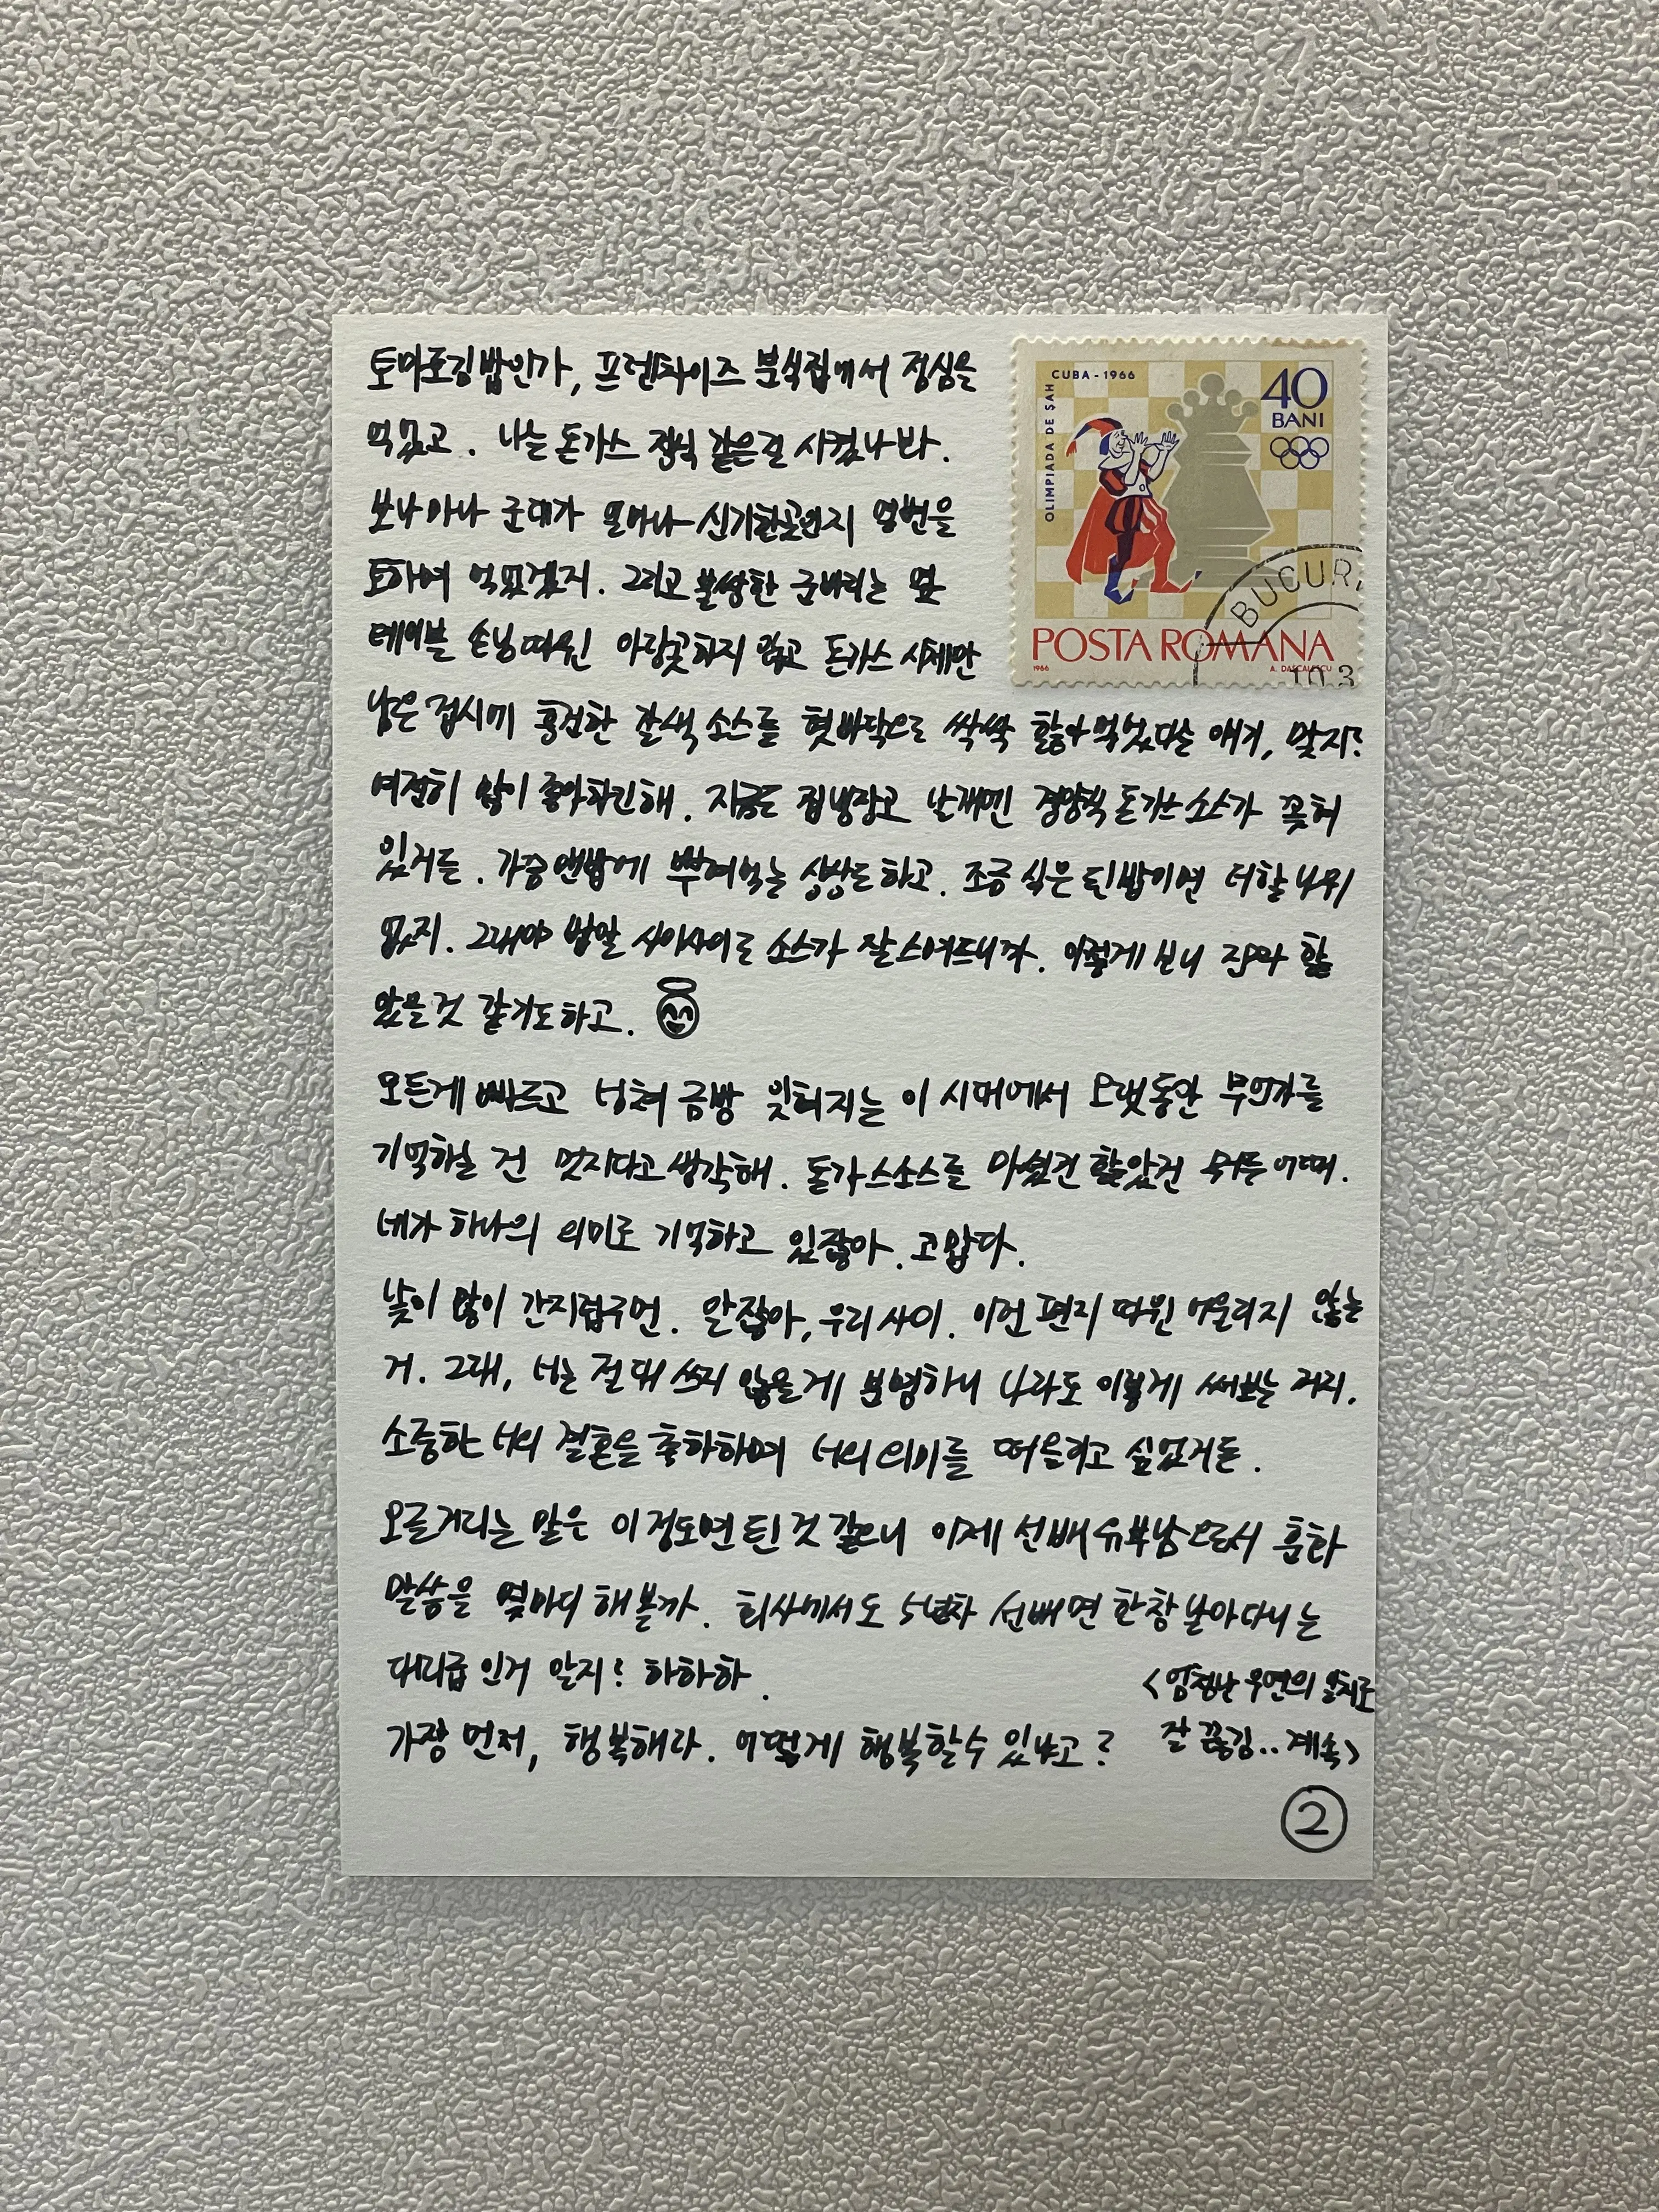 토마토김밥인가, 프렌차이즈 분식집에서 점심을
먹었고. 나는 돈가스 정식 같은걸 시켰나봐.
보나마나 군대가 얼마나 신기한곳인지 열변을
토하며 먹었겠지. 그리고 불쌍한 군바리는 옆
테이블 손님 따윈 아랑곳하지 않고 돈가스 시체만
남은 접시에 흥건한 갈색 소스를 혓바닥으로 싹싹 핥아먹었다는 얘기, 맞지?
여전히 많이 좋아하긴해. 지금도 집냉장고 날개엔 경양식 돈가스 소스가 꽂혀
있거든. 가끔 맨밥에 뿌려먹는 상상도하고. 조금 식은 된밥이면 더할 나위
없지. 그래야 밥알 사이사이로 소스가 잘 스며드니까. 이렇게 보니 진짜 핥
았을것 같기도하고.
모든게 빠르고 넘쳐 금방 잊혀지는 이 시대에서 오랫동안 무언가를
기억하는 건 멋지다고 생각해. 돈가스소스를 마셨건 핥았건 뭐든 어때.
네가 하나의 의미로 기억하고 있잖아. 고맙다.
낯이 많이 간지럽구먼. 알잖아, 우리 사이. 이런 편지 따윈 어울리지 않는
거. 그래, 너는 절대 쓰지 않을게 분명하니 나라도 이렇게 써보는 거지.
소중한 너의 결혼을 축하하며 너의 의미를 떠올리고 싶었거든.
오글거리는 말은 이정도면 된 것 같으니 이제 선배 유부남으로서 훈화
말씀을 몇마디 해볼까. 회사에서도 5년차 선배면 한창 날아다니는
대리급 인거 알지? 하하하.
가장 먼저, 행복해라. 어떻게 행복할수 있냐고?
<엄청난 우연의 일치로
잘 끊김.. 계속>
②
CUBA - 1966
OLIMPIADA DE SAH
40
BANI
POSTA ROMANA
1966
A. DASCALESCU
BUCUR
10.3